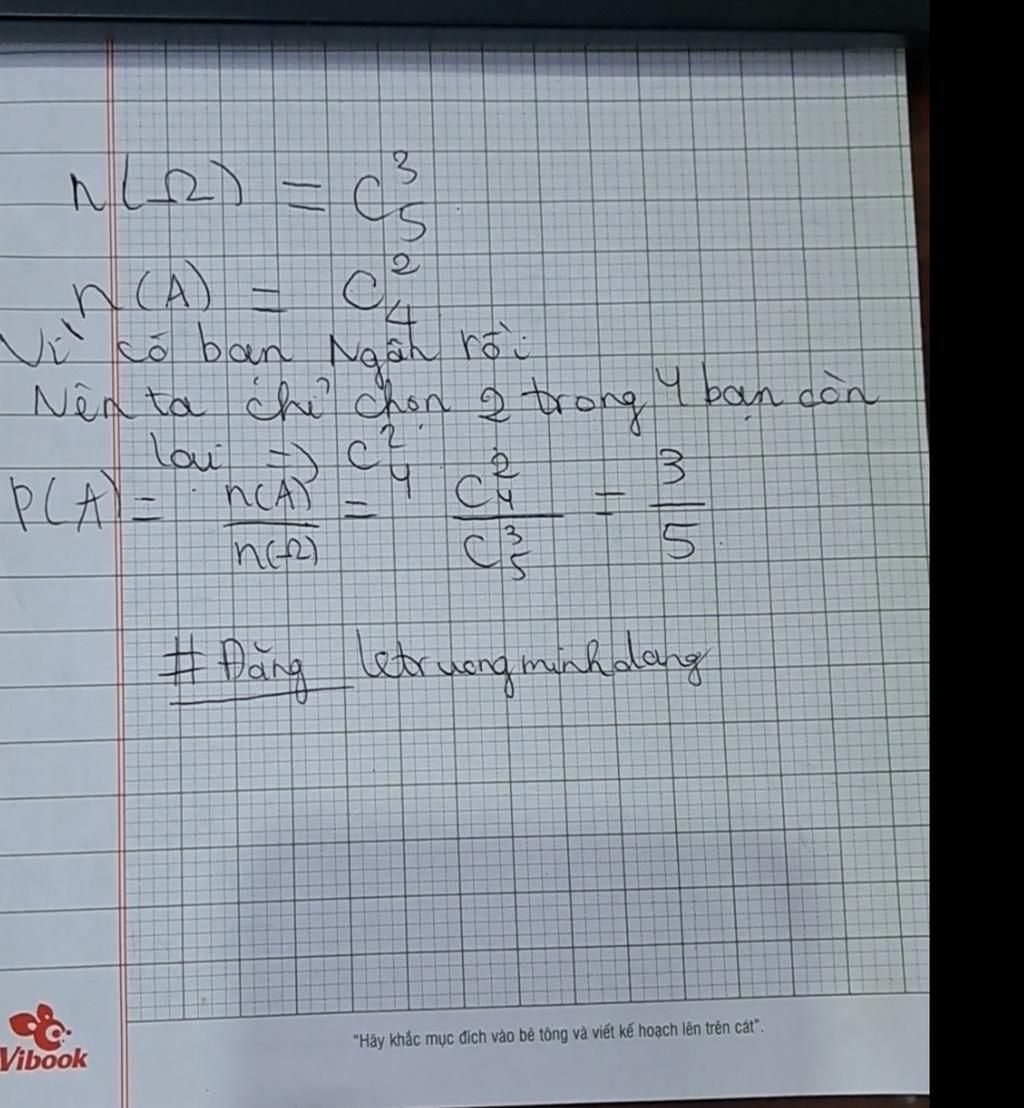 n(Ω) = C₅³
n(A) = C₄²
Vì có bạn Ngân rồi
Nên ta chỉ chọn 2 trong 4 bạn còn
lại => C₄²
P(A) = n(A)/n(Ω) = C₄²/C₅³ = 3/5
# Đăng letruongminhdang
"Hãy khắc mục đích vào bê tông và viết kế hoạch lên trên cát".
Vibook